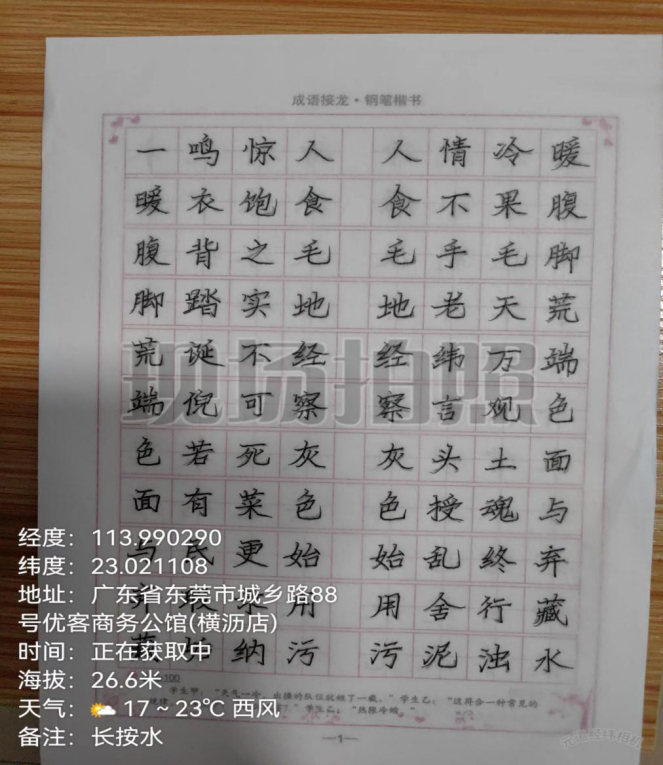 成语接龙·钢笔楷书
一鸣惊人 人情冷暖
暖衣饱食 食不果腹
腹背之毛 毛手毛脚
脚踏实地 地老天荒
荒诞不经 经纬万端
端倪可察 察言观色
色若死灰 灰头土面
面有菜色 色授魂与
与民更始 始乱终弃
用 用舍行藏
纳污 污泥浊水
学生甲：“天气一冷，出操的队伍就短了一截。”学生乙：“这符合一种常见的
”学生乙：“热胀冷缩。”
—1—
现场拍照
经度：113.990290
纬度：23.021108
地址：广东省东莞市城乡路88
号优客商务公馆(横沥店)
时间：正在获取中
海拔：26.6米
天气：17~23℃ 西风
备注：长按水
元道经纬相机